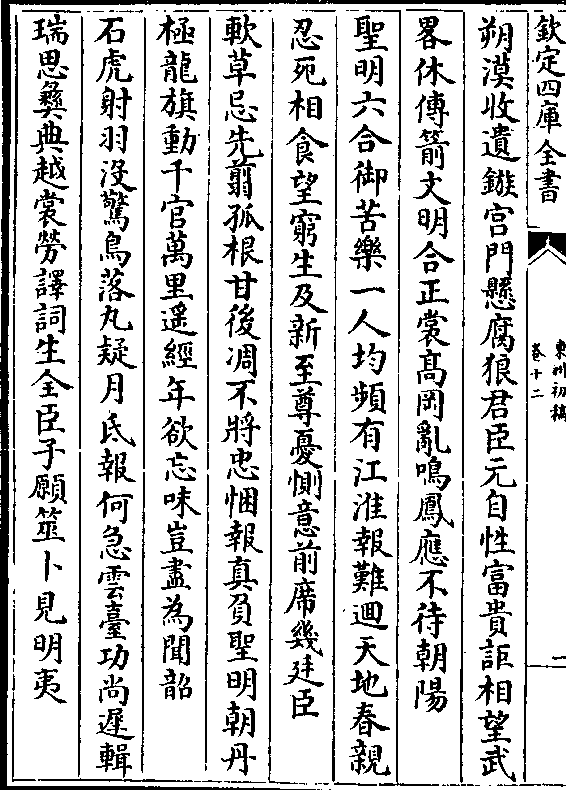 欽定四庫全書
東川初稿
卷十二
一
朔漠收遺鏃宫門懸腐狼君臣元自性富貴詎相望武
畧休傳箭文明合正裳髙岡亂鳴鳳應不待朝陽
聖明六合御苦樂一人均頻有江淮報難迴天地春親
忍死相食望窮生及新至尊憂惻意前席幾廷臣
軟草忌先翦孤根甘後凋不將忠悃報真負聖明朝丹
極龍旗動千官萬里遥經年欲忘味豈盡為聞韶
石虎射羽没驚鳥落丸疑月氐報何急雲臺功尚遲輯
瑞思彛典越裳勞譯詞生全臣子願筮卜見明夷